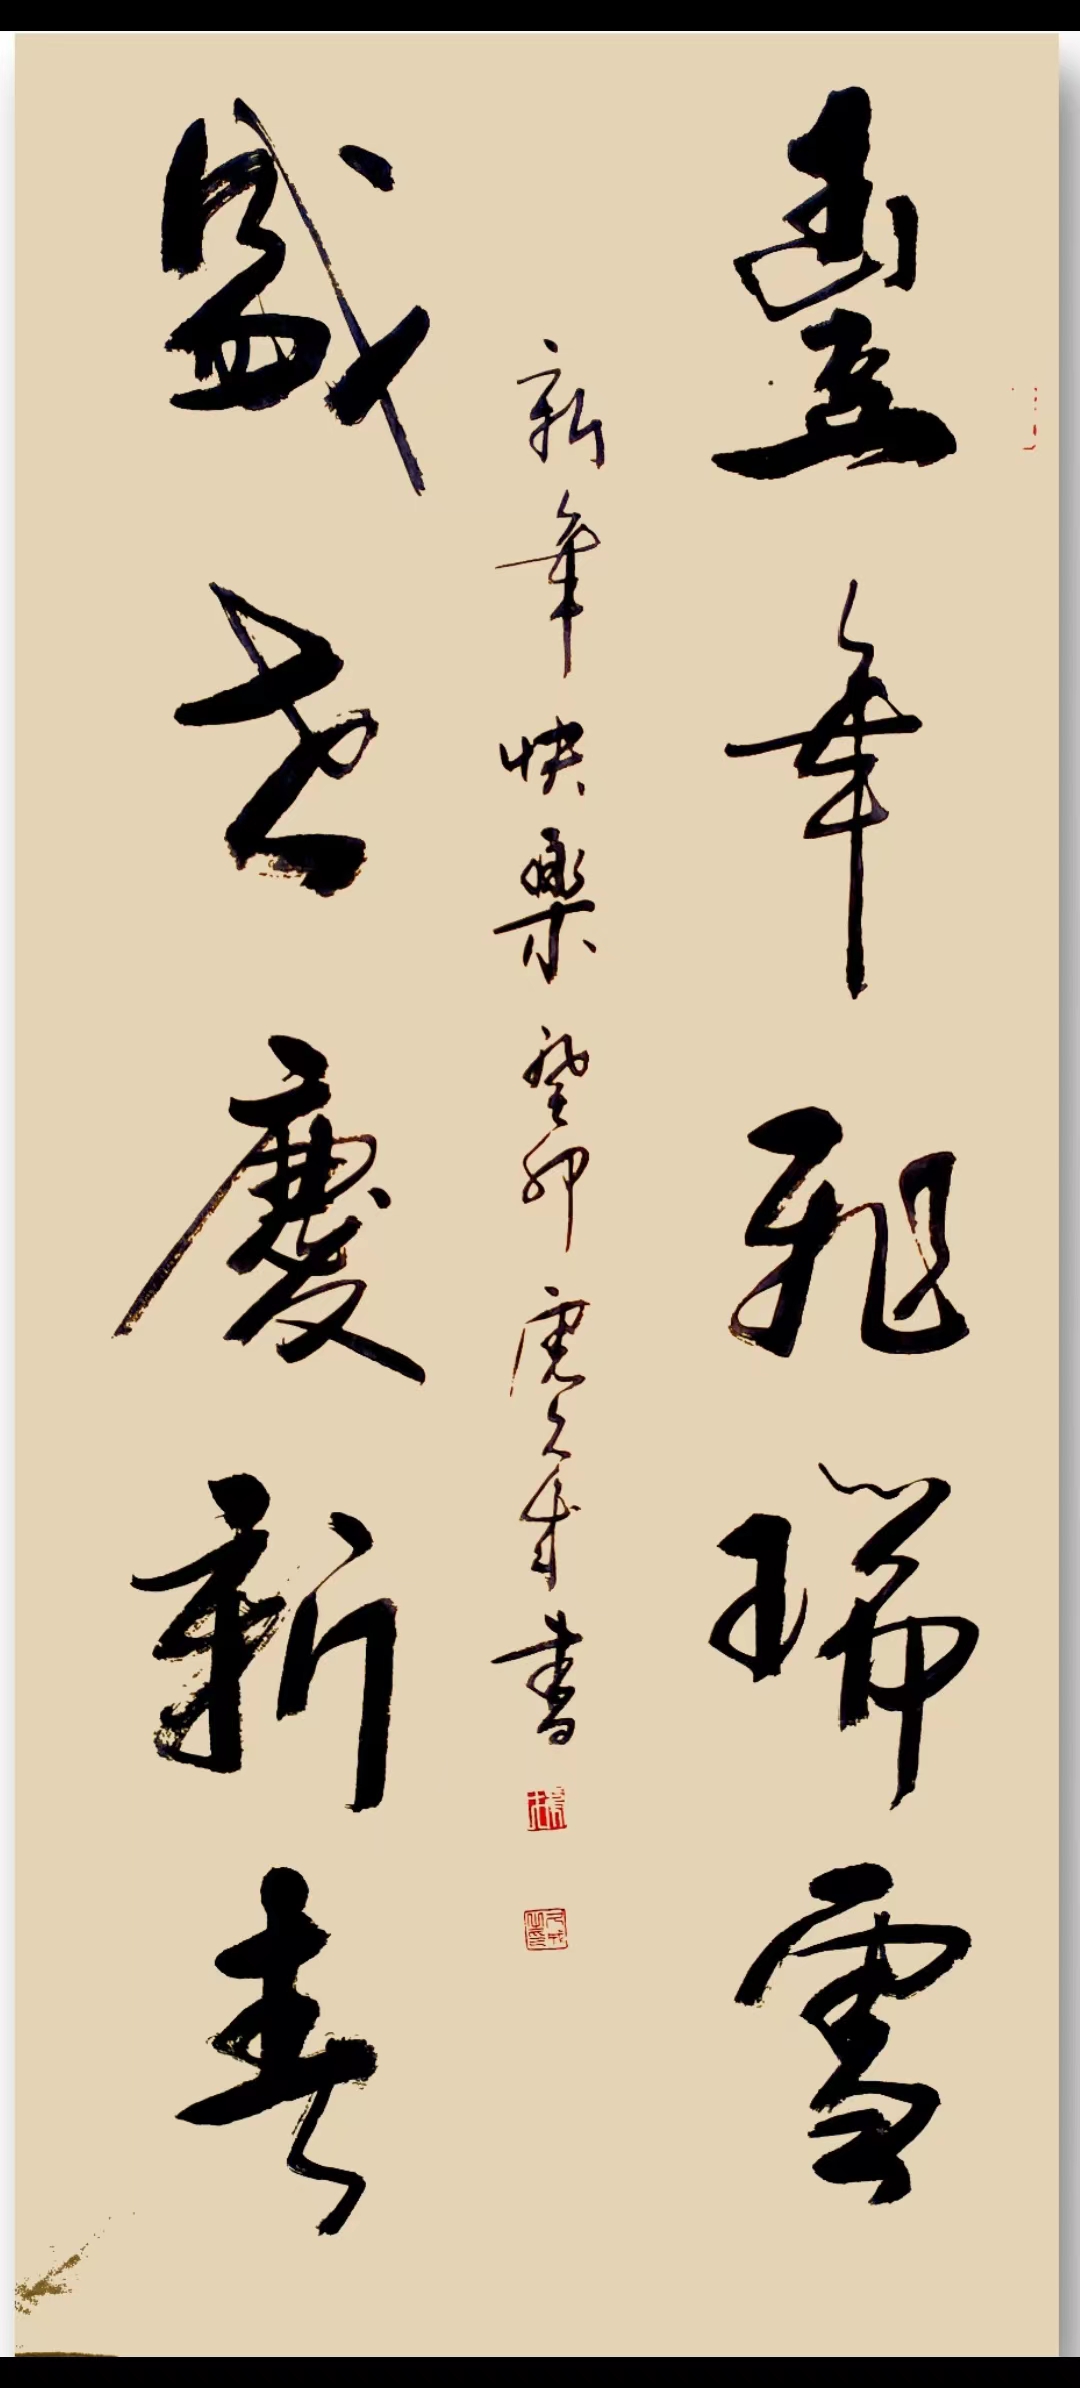 豐年飛瑞雪
新年快樂癸卯書
盛世慶新春